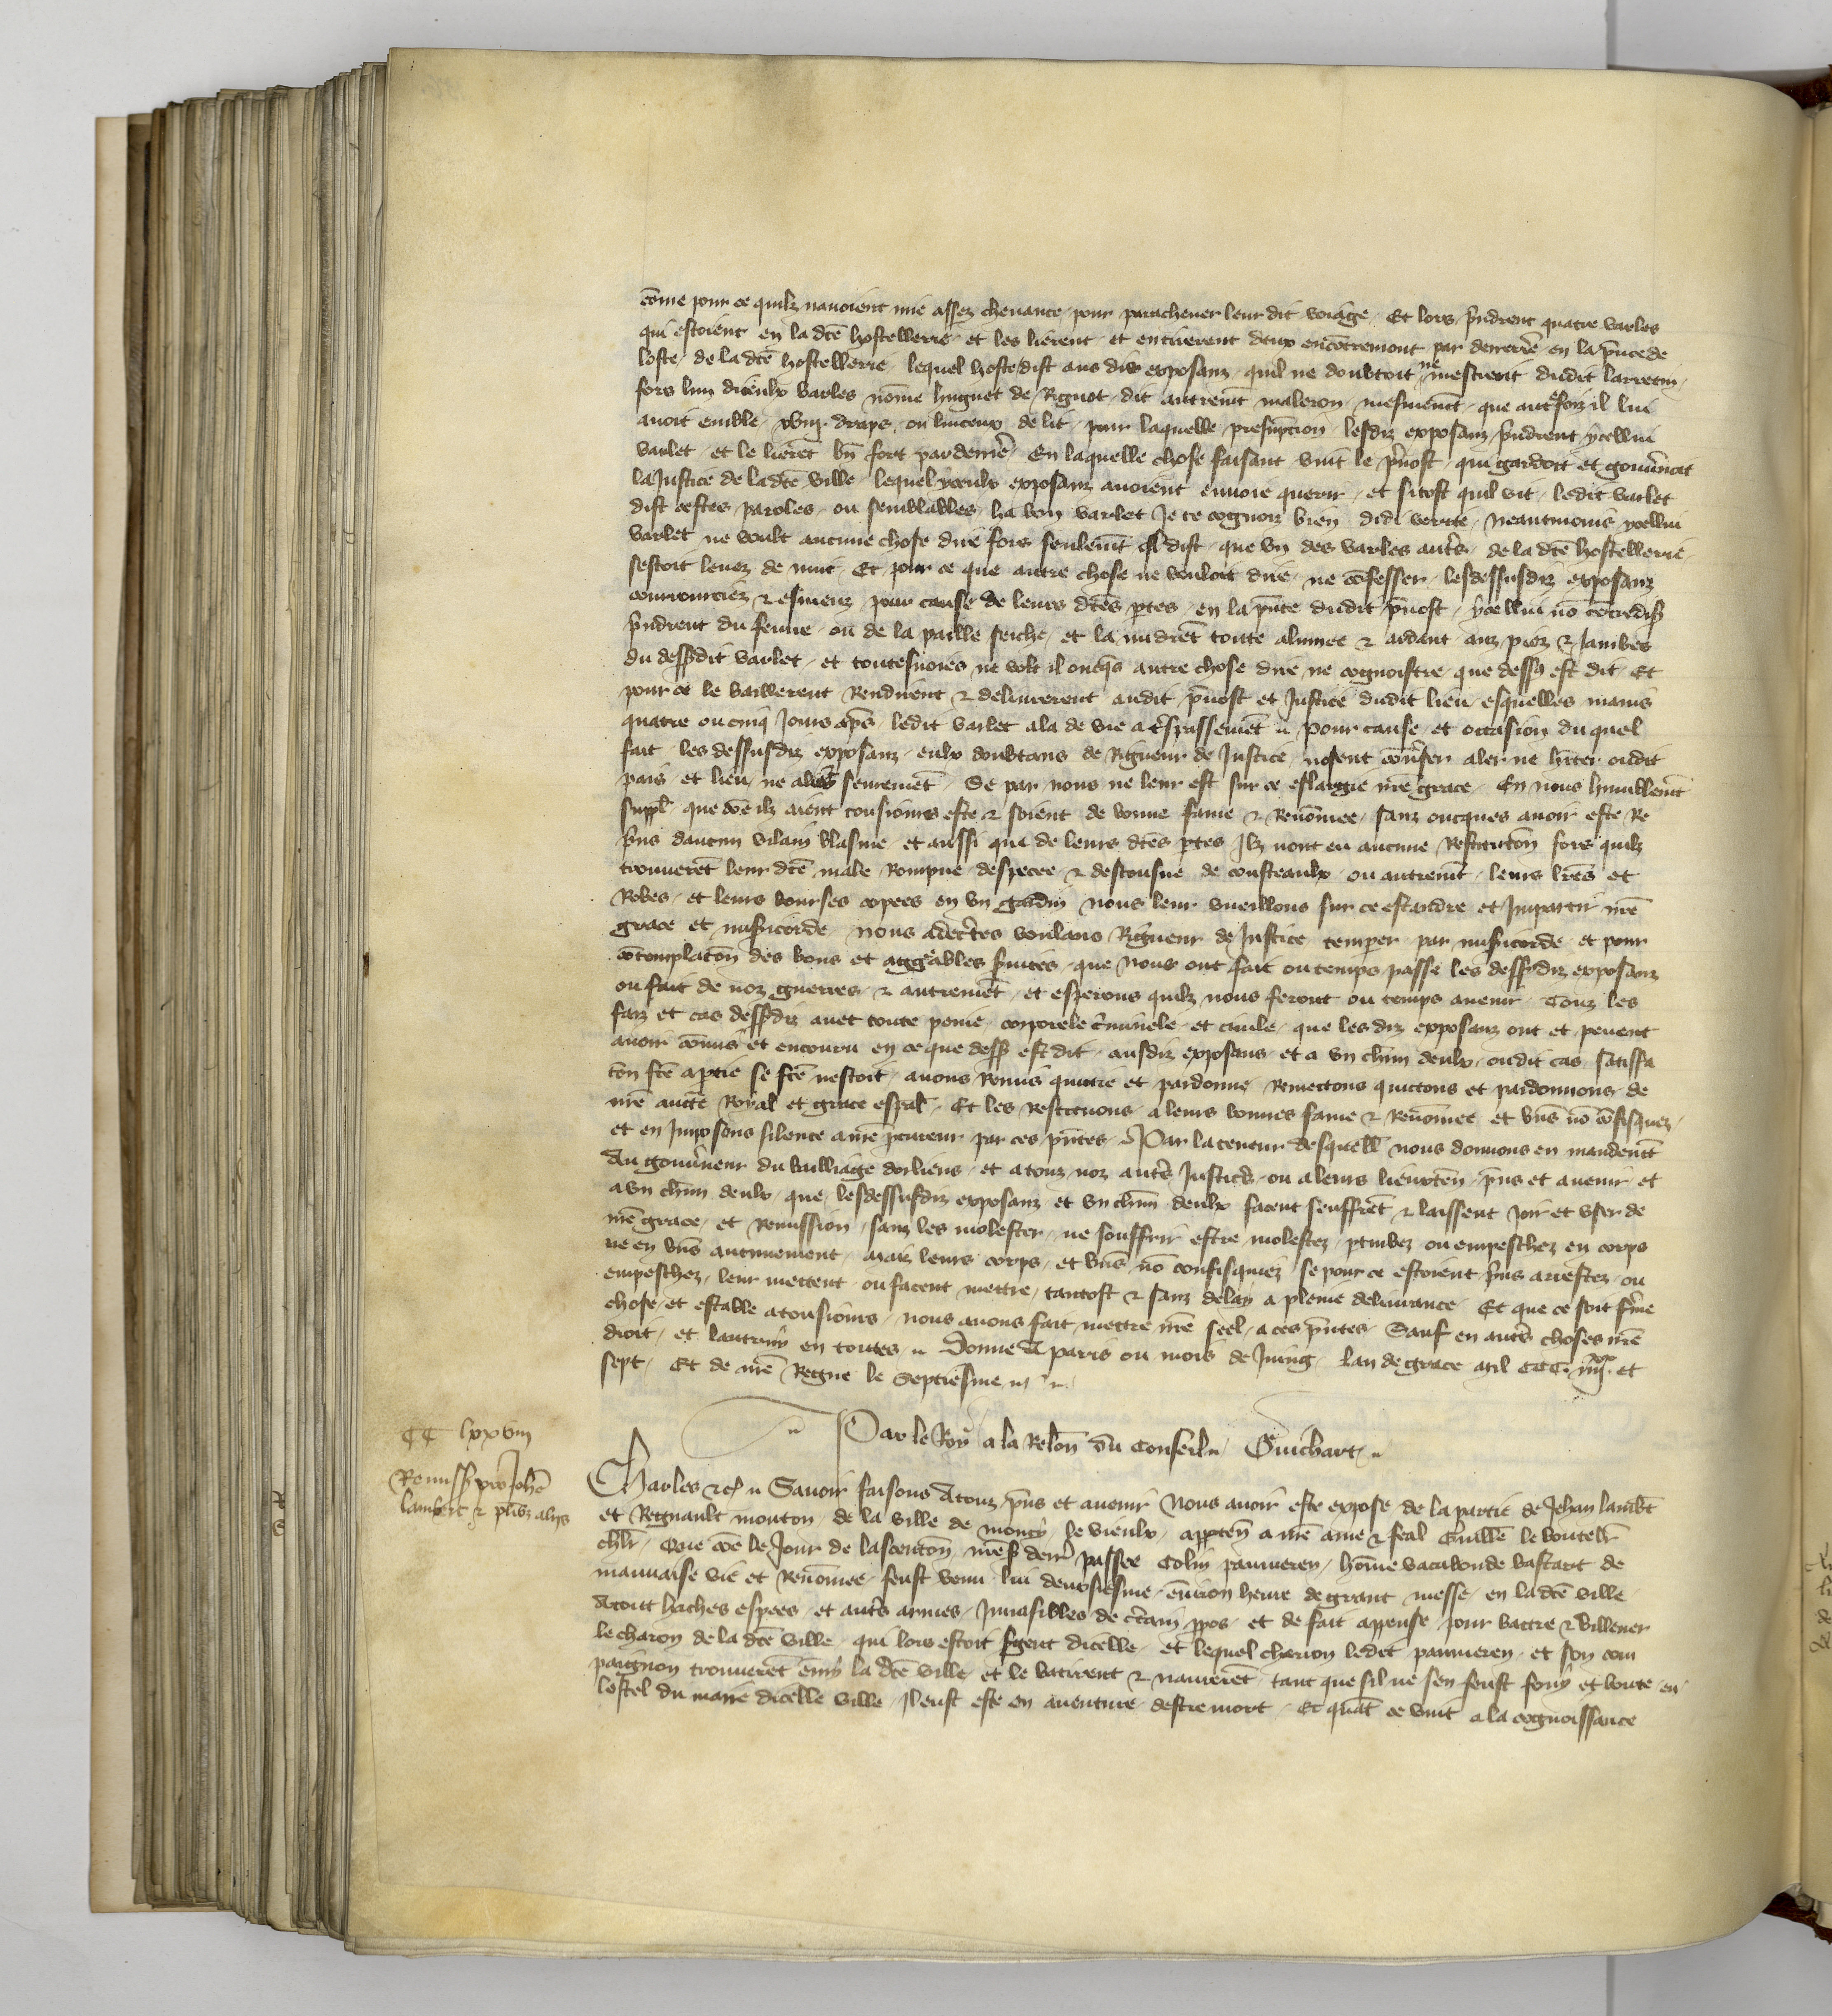 cōme pour ce quilz nauoient mie assez cheuance pour parachever leur dit voiage Et lors p̄ndrent quatre varles
qui estoient en la dt̄e hostellerie et les lierent et en tirerent deux encōtremont par derrer̄e en la p̄nce de
loste de la dt̄e hostellerie lequel hoste dist aus diz exposanz quil ne doubtoit ne mescreoit dudit larrecin
fors lun diceulx varles nōme huguet de Rignot dit autremt̄ maleron mesmemt̄ que autrefoiz il lui
auoit emble draps ou linceux de lit pour laquelle presūpcion lesdiz exposanz p̄ndrent ycellui
varlet et le lierēt bn̄ fort par derrier̄ En laquelle chose faisant vint le p̄uost qui gardoit et gouu̇noit
la Justice de ladt̄e ville lequel yceulx exposanz auoient enuoie querir et si tost quil vit ledit varlet
dist cestes paroles ou semblables ha bon varlet Je te cognoiz bien di di verite Neantmoins ycellui
varlet ne voult aucune chose dire fors seulemt̄ ql̄ dist que vn des varles aut̄s de la dt̄e hostellerie
sestoit leuez de nuit Et pour ce que autre chose ne vouloit dire ne cōfesser lesdessusdiz exposanz
courrouciez ⁊ esmeuz pour cause de leurs dt̄es ꝑtes en la p̄nce dudit p̄uost ycellui nō cōtredis̄
p̄ndrent du feurre ou de la paille seiche et la midrēt toute alumee ⁊ ardant aux piez ⁊ Jambes
du dess̄dit varlet et toutesuoies ne volt il onq̄s autre chose dire ne cognoistre que dess̄ est dit Et
pour ce le baillerent Rendirent ⁊ deliurerent audit p̄uost et Justice dudit lieu esquelles mains
quatre ou cinq Jours ap̄s ledit varlet ala de vie a t̄spassemēt Pour cause et occasion du quel
fait les dessusdiz exposanz eulx doubtans de Rigueur de Justice nosent cōu̇ser aler ne hāter oudit
pais et lieu ne seurement Se par nous ne leur est sur ce eslargie nr̄e grace En nous humblemt̄
suppl̄ que cōe ilz aient tousiours este ⁊ soient de bonne fame ⁊ Renōmee sanz oncques auoir este Re
pr̄ns daucun vilain blasme et aussi que de leurs dt̄es ꝑtes Ilz nont eu aucune Restitutōn fors quilz
trouuerēt leur dt̄e male Rompue despecee ⁊ descousue de cousteaulx ou autremt̄ leurs lr̄es et
Robes et leurs bourses copees en vn gardin Nous leur vueillons sur ce estandre et Impartir nr̄e
grace et misericorde Nous adecer̄tes voulans Rigueur de Justice temper par misericorde et pour
cōtemplatōn des bons et aggreables s̄uices que Nous ont fait ou temps passe les dess̄diz exposanz
ou fait de noz guerres ⁊ autremēt et esperons quilz nous feront ou temps auenir Touz les
faiz et cas dess̄diz auec toute peine corporele c̄minele et ciuile que les diz exposanz ont et peuent
auoir cōmis et encouru en ce que dess̄ est dit ausdiz exposans et a vn chūn deulx oudit cas satisfa
tōn fcē a ꝑtie se fcē nestoit auons Remis quicte et pardonne Remectons quictons et pardonnons de
nr̄e aucte Royal et grace esp̄al Et les Restituons a leurs bonnes fame ⁊ Renōmee et biēs nō cōfisquez
et en Imposons silence a nr̄e procureur par ces p̄ntes Par la teneur desquell̄ nous donnons en mandemt̄
Au gouu̇neur du bailliage dorliens et a touz noz aut̄s Justicers ou a leurs lieuxten̄ p̄ns et auenir et
a vn chūn deulx que lesdessusdiz exposanz et vn chūn deulx facent seuffrēt ⁊ laissent Joir et vser de
nr̄e grace et Remission sanz les molester ne souffrir estre molestez ꝑturbez ou empeschez en corps
ne en biēs aucunement Maiz leurs corps et biēs nō confisquiez se pour ce estoient p̄ns arrestez ou
empeschez leur mettent ou facent mettre tantost ⁊ sanz delay a pleine deliurance Et que ce soit ferme
chose et estable a tousiours nous auons fait mettre nr̄e seel a ces p̄ntes Sauf en aut̄s choses nr̄e
droit et lautruy en toutes Donne a paris ou mois de Juing lan de grace Mil CCC. iiijxx et
sept Et de nr̄e Regne le Septiesme
Par le Roy a la Relōn du Conseil Guichart
CC lxxviij
Remiss̄ pro Joh̄e
lambert ⁊ plib̄z alijs
Charles ⁊c̄ Sauoir faisons A touz p̄ns et auenir Nous auoir este expose de la partie de Jehan lambt̄
et Regnault mouton de la ville de moncy le vieulx apꝑten̄ a nr̄e ame ⁊ feal Guill̄e le boutell̄r
chl̄r Que cōe le Jour de lascencōn nr̄e s̄ derr̄ passee Colin panueren hōme vacabonde bastart de
mauuaise vie et Renōmee feust venu lui deuxiesme enuiron heure de grant messe en ladt̄e ville
A tout haches espees et aut̄s armes Inuasibles de c̄tain ꝓpos et de fait appense pour batre ⁊ villener
le charon de la dt̄e ville qui lors estoit s̄gent dicelle et lequel charron ledit panueren et son com
paignon trouuerēt emy la dt̄e ville et le batirent ⁊ naurerēt tant que sil ne sen feust fouy et boute en
lostel du maire dicelle ville Il eust este en auenture destre mort Et quāt ce vint a la cognoissance